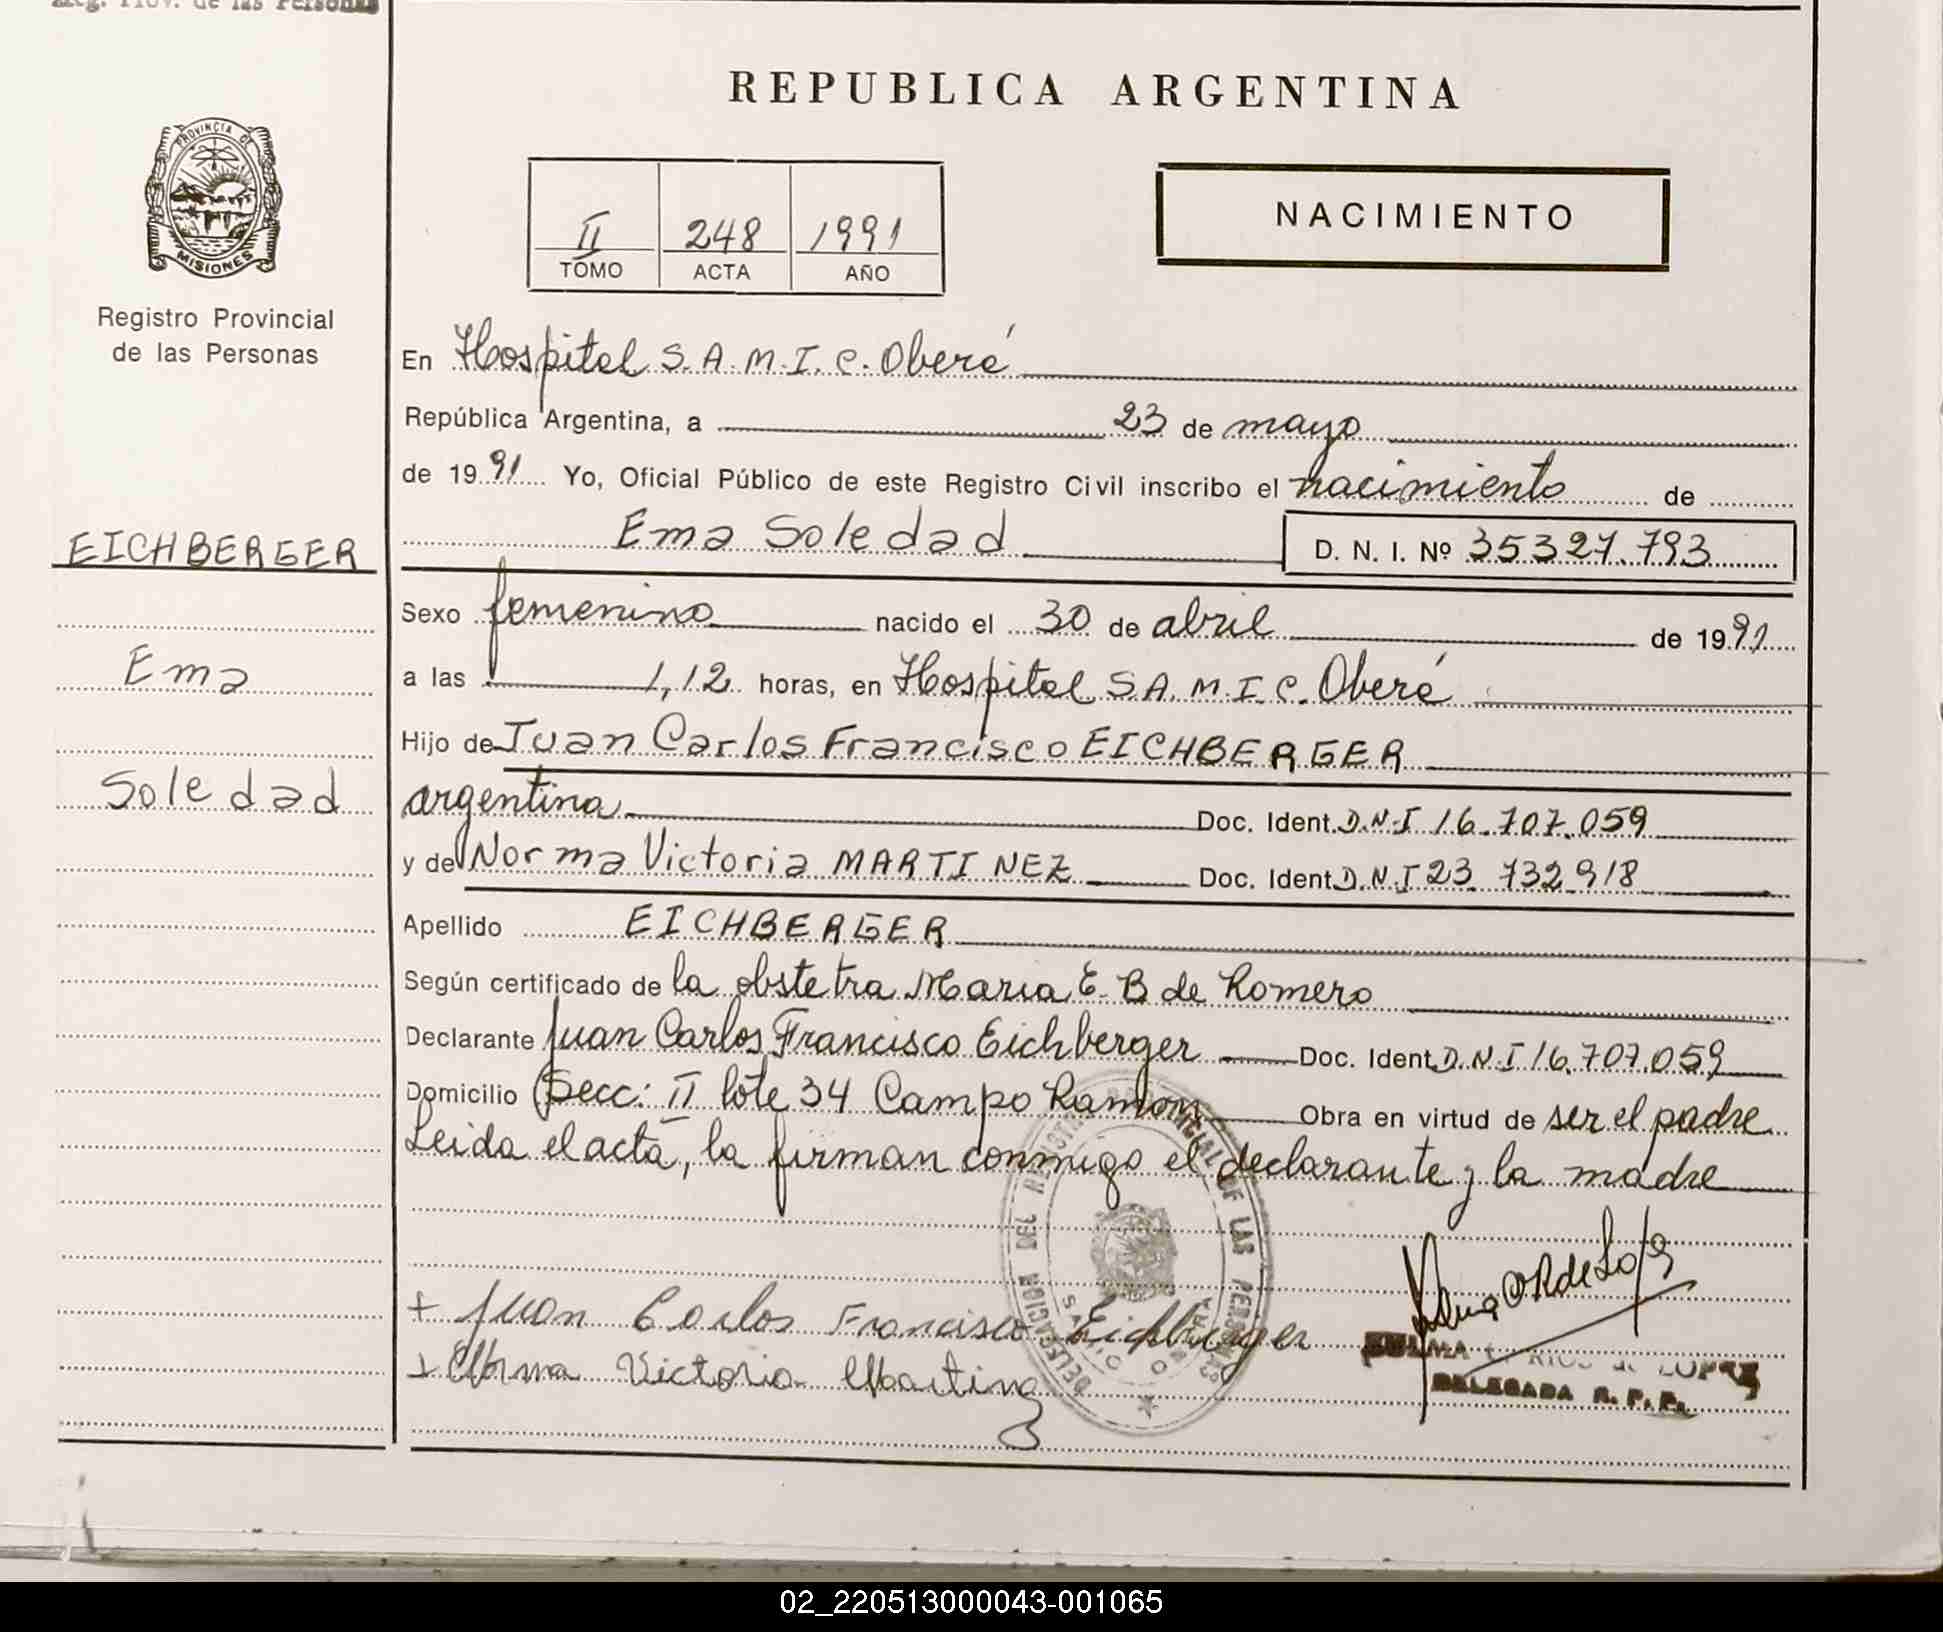 Reg. Prov. de las Personas
REPUBLICA ARGENTINA
PROVINCIA DE
MISIONES
Registro Provincial
de las Personas
II 248 1991
TOMO ACTA AÑO
NACIMIENTO
En Hospital S.A.M.I.C. Oberá
República Argentina, a 23 de mayo
de 1991 Yo, Oficial Público de este Registro Civil inscribo el nacimiento de
Ema Soledad D. N. I. Nº 35.327.793
EICHBERGER
Ema
Soledad
Sexo femenino nacido el 30 de abril de 1991
a las 1,12 horas, en Hospital S.A.M.I.C. Oberá
Hijo de Juan Carlos Francisco EICHBERGER
argentina Doc. Ident. D.N.I 16.707.059
y de Norma Victoria MARTINEZ Doc. Ident. D.N.I 23 732918
Apellido EICHBERGER
Según certificado de la obstetra Maria E. B de Romero
Declarante Juan Carlos Francisco Eichberger Doc. Ident. D.N.I 16.707.059
Domicilio Secc: II lote 34 Campo Ramon Obra en virtud de ser el padre
Leida el acta, la firman conmigo el declarante y la madre
DELEGACION DEL REGISTRO PROVINCIAL DE LAS PERSONAS
+ Juan Carlos Francisco Eichberger
+ Norma Victoria Martinez
DELEGADA R. P. P.
02_220513000043-001065